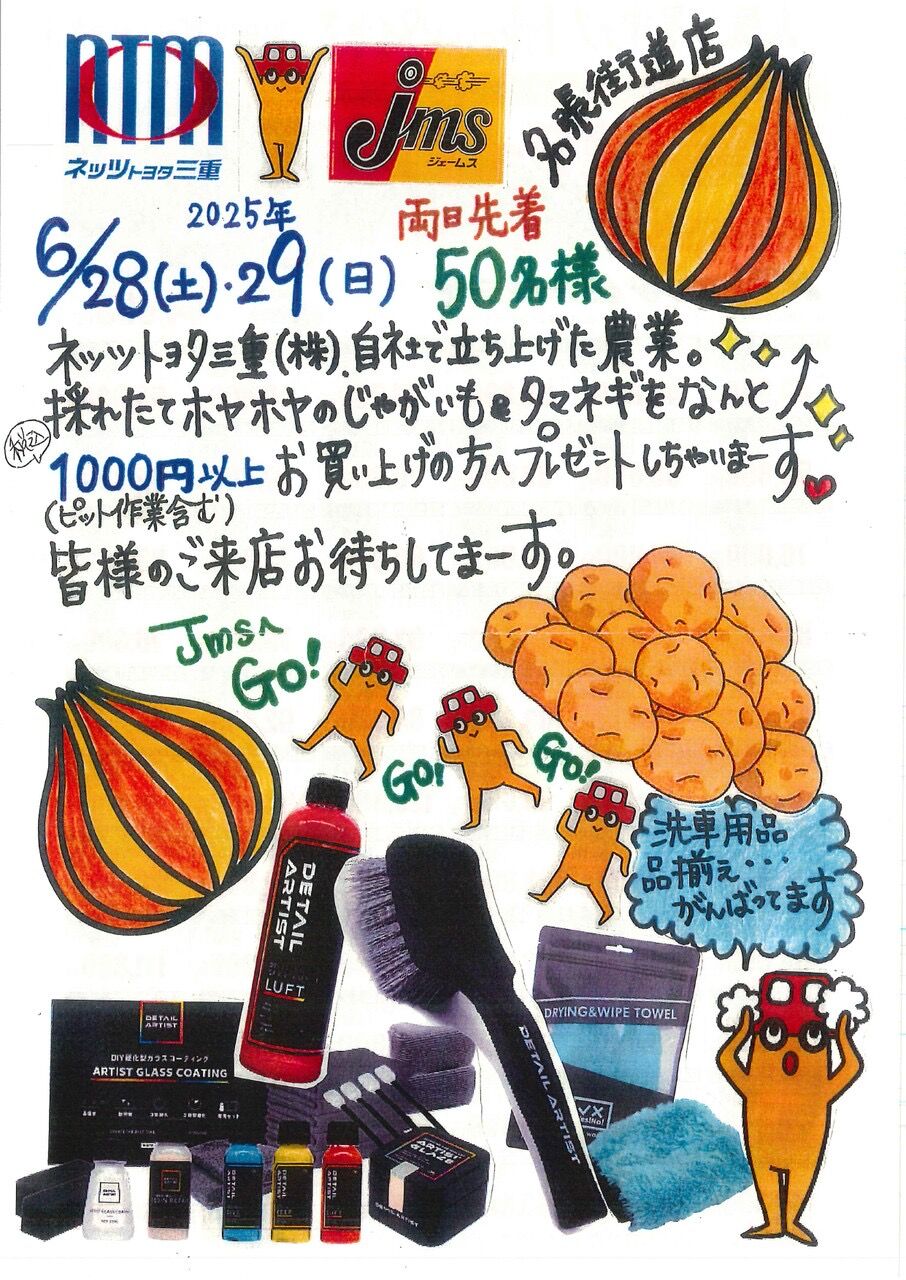 NTM
ネッツトヨタ三重
jms
ジェームス
名張街道店
2025年
6/28(土)・29(日)
両日先着
50名様
ネッツトヨタ三重(株)、自社で立ち上げた農業。
採れたてホヤホヤのじゃがいもとタマネギをなんと
税込
1000円以上お買い上げの方へプレゼントしちゃいまーす
(ピット作業含む)
皆様のご来店お待ちしてまーす。
JmsへGO!
GO!
GO!
洗車用品
品揃え・・・
がんばってます
DETAIL ARTIST
LUFT
DETAIL ARTIST
DRYING&WIPE TOWEL
DETAIL ARTIST
DIY硬化型ガラスコーティング
ARTIST GLASS COATING
ARTIST GLAZE
DETAIL ARTIST
DETAIL ARTIST
DETAIL ARTIST
DETAIL ARTIST